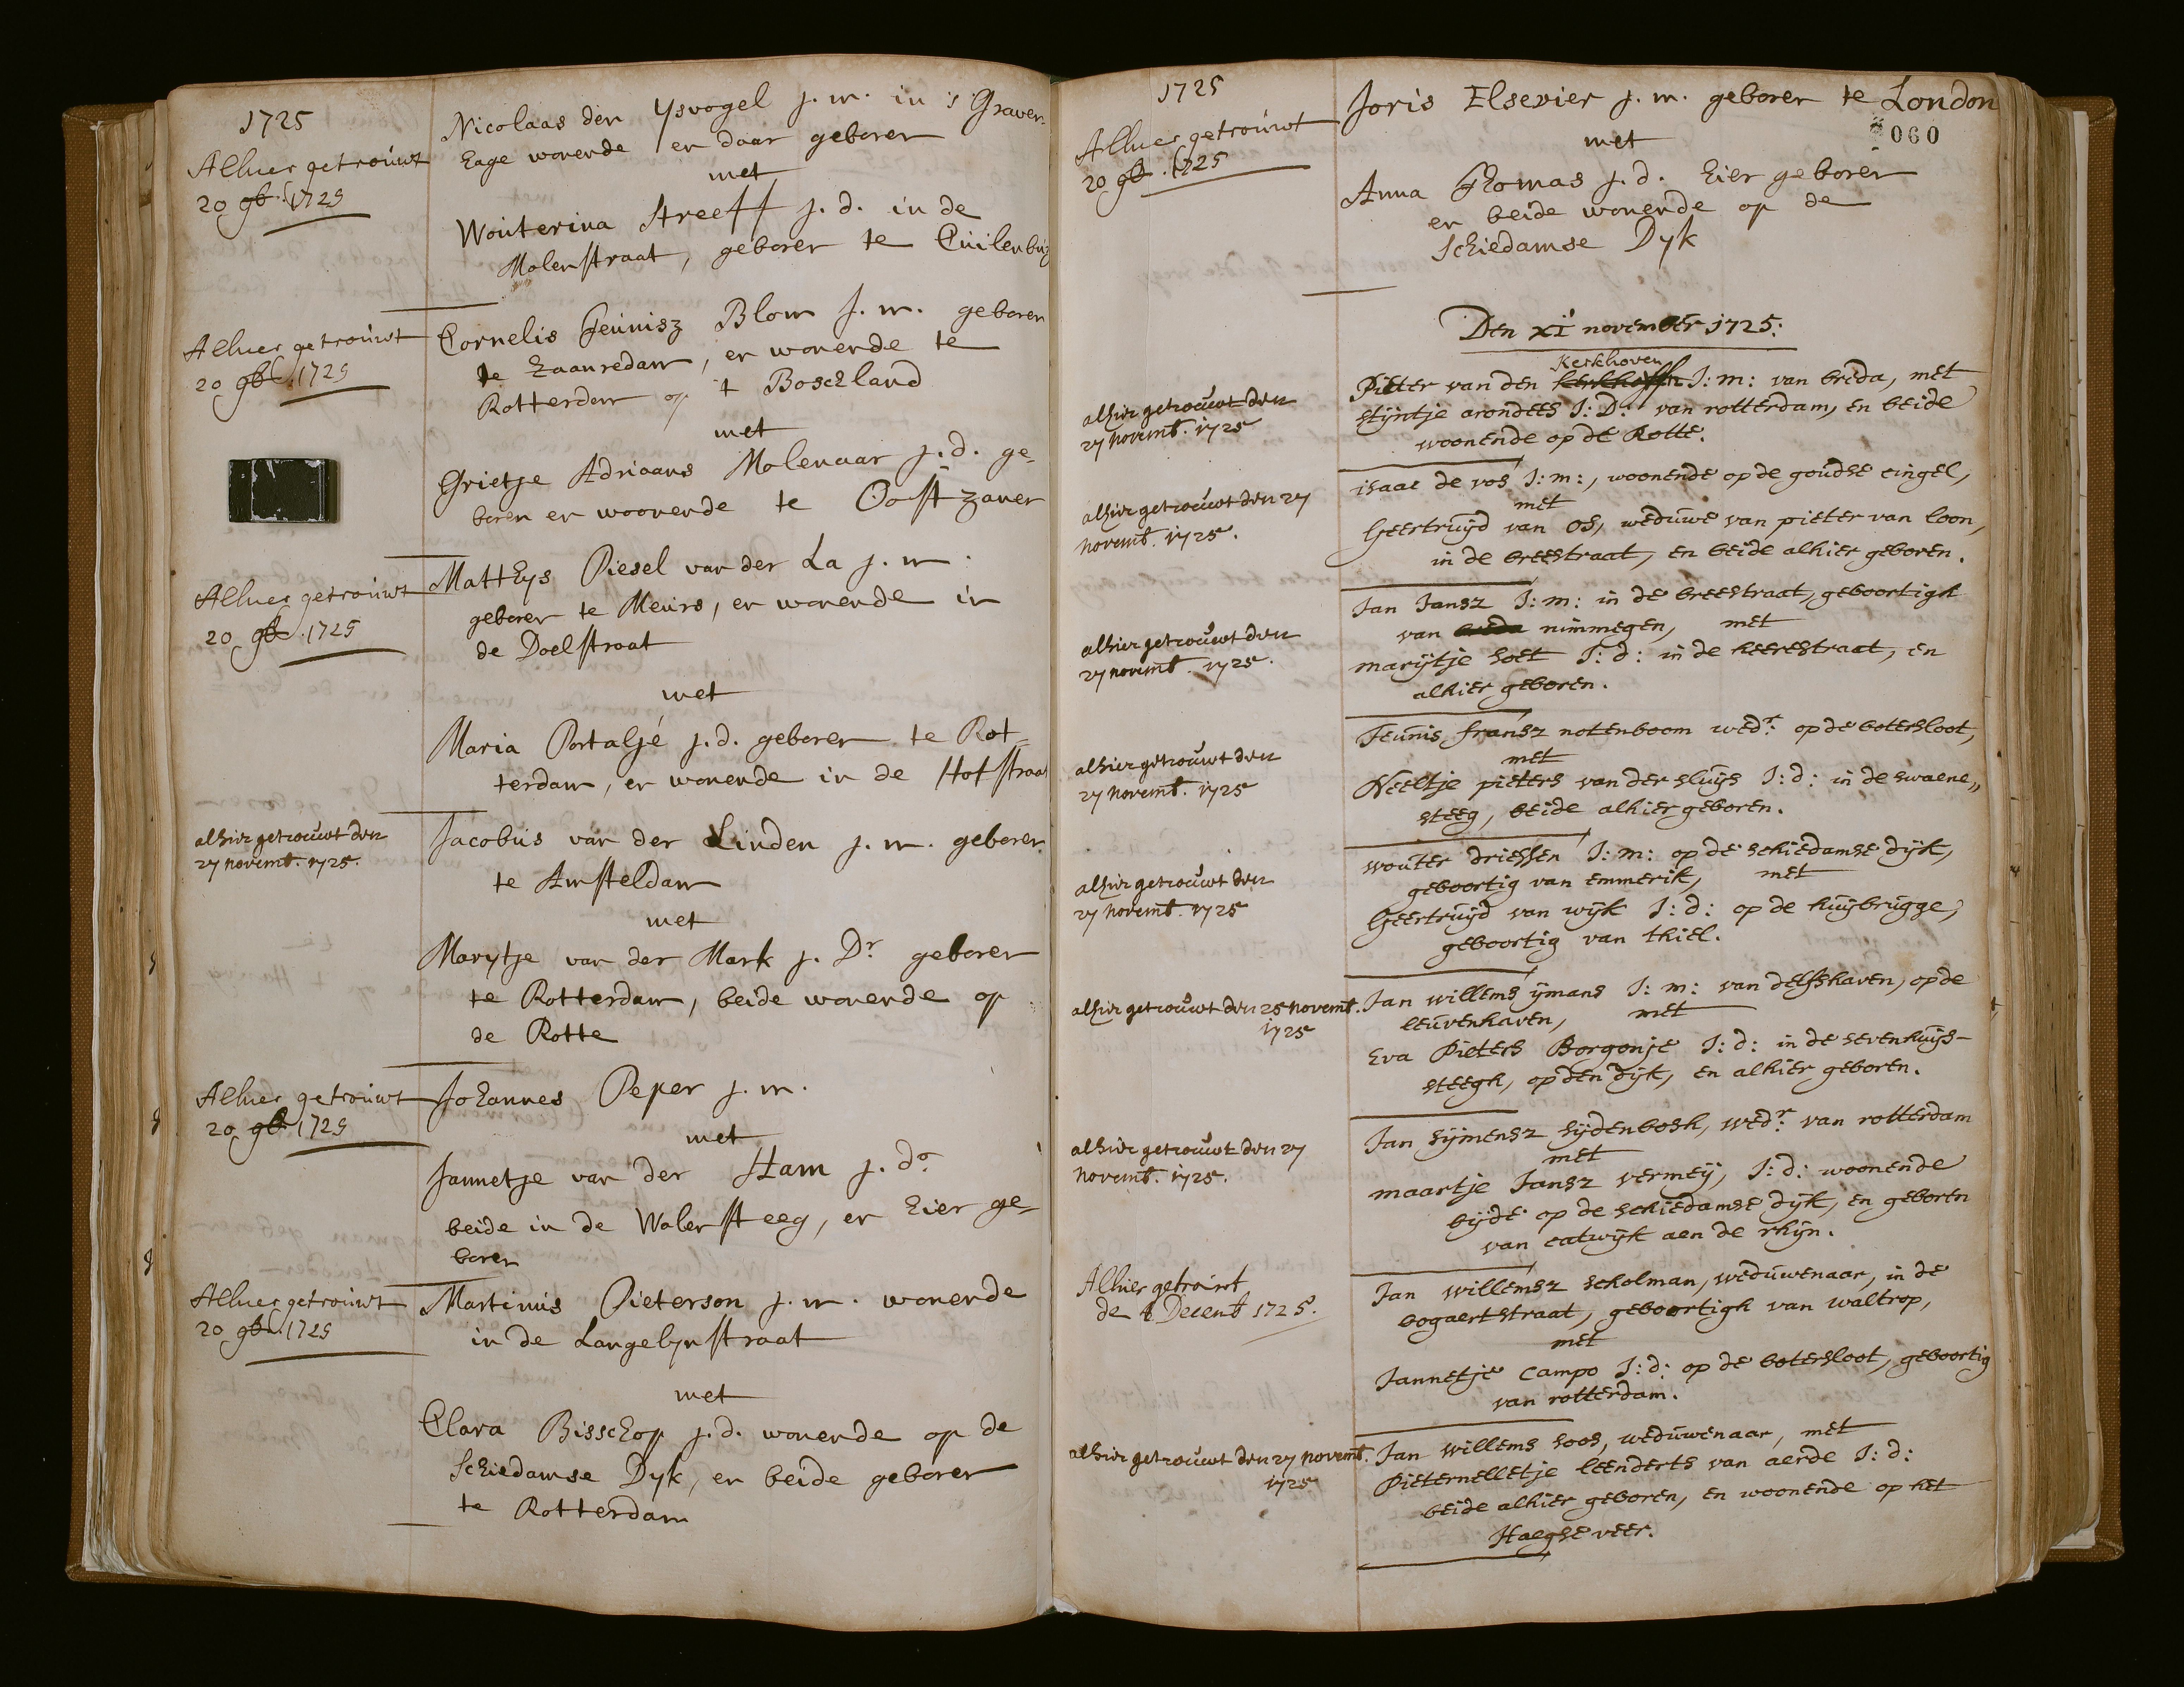 1725
Alhier getrouwt
20 9b. 1725
Nicolaas den Ysvogel j. m. in 's Graven
hage wonende en daar geboren
met
Wouterina Streeff j. d. in de
Molenstraat, geboren te Cuilenburg
Alhier getrouwt
20 9b. 1725
Cornelis Teunisz Blom j. m. geboren
te Zaanredam, en wonende te
Rotterdam op 't Boschland
met
Grietje Adriaans Molenaar j. d. ge-
boren en woonende te Oostzanen
Alhier getrouwt
20 9b. 1725
Matthys Piesel van der La j. m.
geboren te Meurs, en wonende in
de Doelstraat
met
Maria Portaljé j. d. geboren te Rot-
terdam, en wonende in de Hofstraat
alhier getrouwt den
27 novemb. 1725.
Jacobus van der Linden j. m. geboren
te Amsteldam
met
Marytje van der Mark j. Dr geboren
te Rotterdam, beide wonende op
de Rotte
Alhier getrouwt
20 9b 1725
Johannes Peper j. m.
met
Jannetje van der Ham j. do
beide in de Walensteeg, en hier ge-
boren
Alhier getrouwt
20 9b. 1725
Martinus Pieterson j. m. wonende
in de Langelynstraat
met
Clara Bisschop j. d. wonende op de
Schiedamse Dyk, en beide geboren
te Rotterdam
1725
060
Alhier getrouwt
20 9b. 1725
Joris Elsevier j. m. geboren te London
met
Anna Thomas j. d. hier geboren
en beide wonende op de
Schiedamse Dyk
Den xi november 1725:
alhier getrouwt den
27 novemb. 1725
Kerkhoven
Pieter van den kerkhoffen J: m: van breda, met
stijntje arondees J: D: van rotterdam, en beide
woonende op de Rotte.
alhier getrouwt den 27
novemb. 1725.
isaac de vos J: m:, woonende op de goudse cingel,
met
Geertruijd van os, weduwe van pieter van loon,
in de breestraat, en beide alhier geboren.
alhier getrouwt den
27 novemb. 1725.
Jan Jansz J: m: in de breestraat, geboortigh
van breda nimmegen, met
marijtje soet J: d: in de heerestraat, en
alhier geboren.
alhier getrouwt den
27 novemb. 1725
Teunis fransz notenboom wedr: op de botersloot,
met
Neeltje pieters van der sluijs J: d: in de swaene„
steeg, beide alhier geboren.
alhier getrouwt den
27 novemb. 1725
wouter driessen J: m: op de schiedamse dijk,
geboortig van emmerik, met
Geertruijd van wijk J: d: op de huijbrugge,
geboortig van thiel.
alhier getrouwt den 25 novemb.
1725
Jan willems ijmans J: m: van delfshaven, op de
leuvenhaven, met
Eva Pieters Borgonje J: d: in de sevenhuijs-
steegh, op den dijk, en alhier geboren.
alhier getrouwt den 27
novemb. 1725.
Jan sijmensz sijdenbosh, wedr: van rotterdam
met
maartje Jansz vermeij, J: d: woonende
bijde op de schiedamse dijk, en geboren
van catwijk aen de rhijn.
Alhier getrouwt
de 4 Decemb 1725.
Jan willemsz scholman, weduwenaar, in de
bogaertstraat, geboortigh van waltrop,
met
Jannetje campo J: d: op de botersloot, geboortig
van rotterdam.
alhier getrouwt den 27 novemb.
1725
Jan willems soos, weduwenaar, met
Pieternelletje leenderts van aerde J: d:
beide alhier geboren, en woonende op het
Haegse veer.